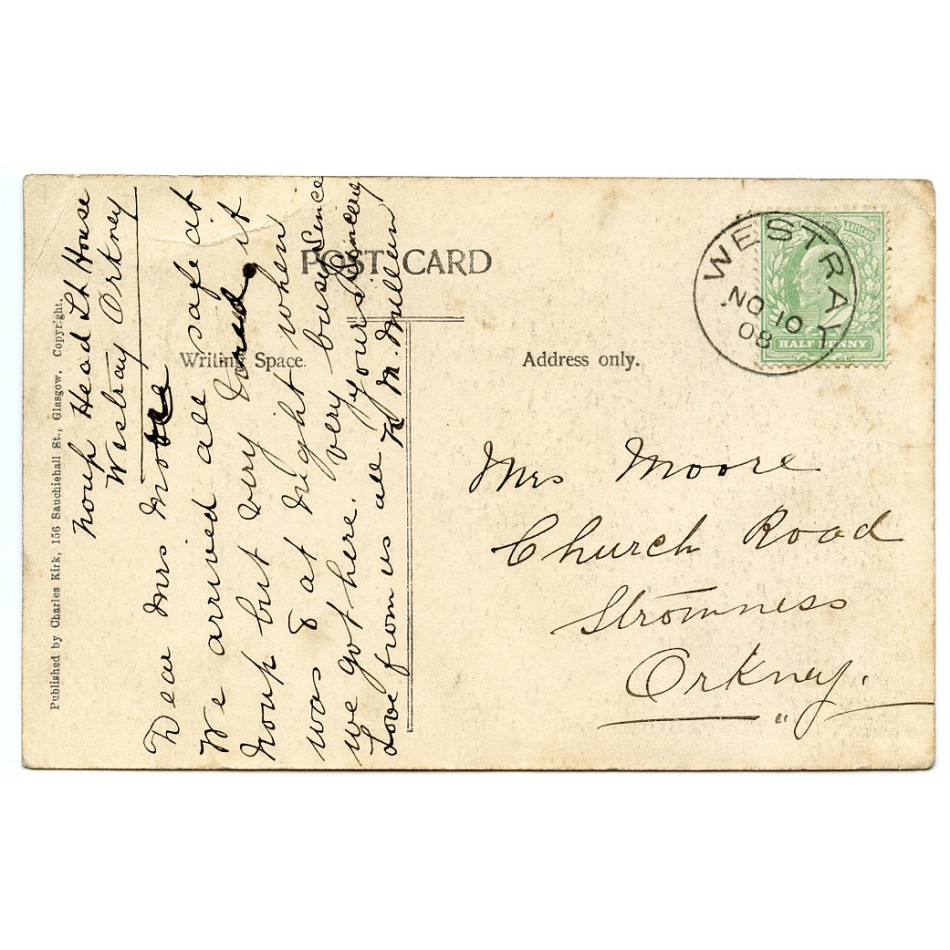 POST CARD
Writing Space.
Address only.
Published by Charles Kirk, 156 Sauchiehall St., Glasgow. Copyright.
Noup Head Lt House
Westray Orkney
Dear Mrs Moore
We arrived all safe at
Noup but very it
was 8 at night when
we got here. very busy since
Love from us all yours sincerely
M. Millan
WESTRAY
NO 10
08
HALFPENNY
Mrs Moore
Church Road
Stromness
Orkney.